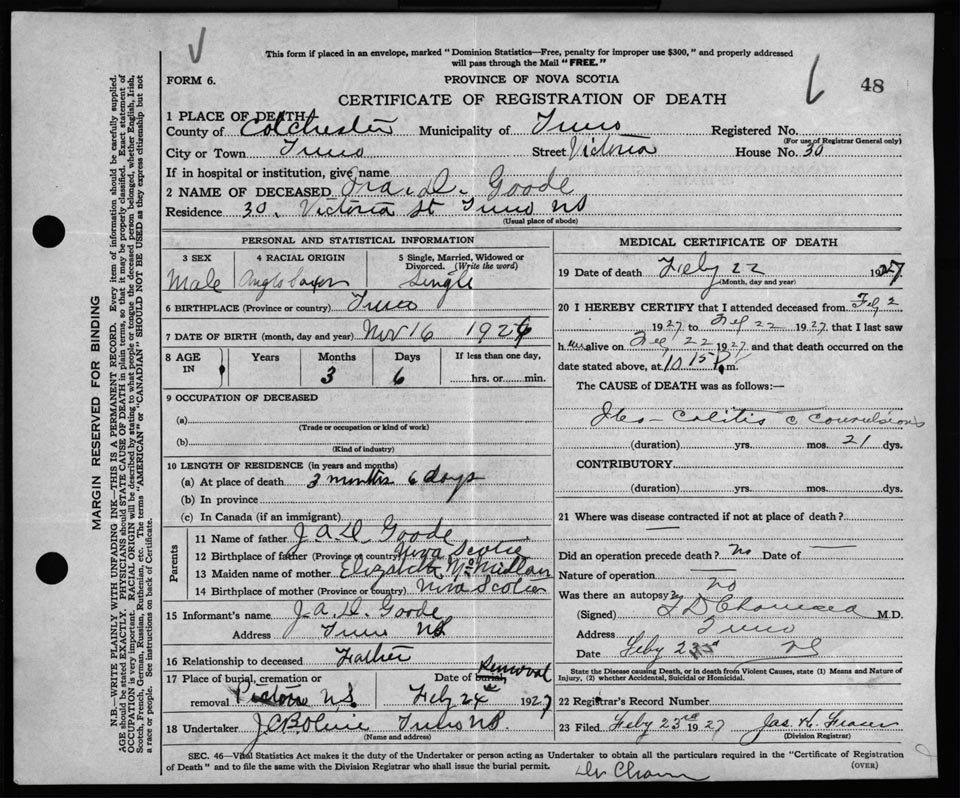 This form if placed in an envelope, marked "Dominion Statistics—Free, penalty for improper use $300," and properly addressed
will pass through the Mail "FREE."
FORM 6.
PROVINCE OF NOVA SCOTIA
48
CERTIFICATE OF REGISTRATION OF DEATH
1 PLACE OF DEATH
County of Colchester Municipality of Truro Registered No.
(For use of Registrar General only)
City or Town Truro Street Victoria House No. 30
If in hospital or institution, give name
2 NAME OF DECEASED Goode
Residence 30, Victoria St Truro NS
(Usual place of abode)
PERSONAL AND STATISTICAL INFORMATION
3 SEX
4 RACIAL ORIGIN
5 Single, Married, Widowed or
Divorced. (Write the word)
Male Anglo Saxon Single
6 BIRTHPLACE (Province or country) Truro
7 DATE OF BIRTH (month, day and year) Nov 16 1926
8 AGE
IN
Years Months Days If less than one day,
3 6 hrs. or min.
9 OCCUPATION OF DECEASED
(a)
(Trade or occupation or kind of work)
(b)
(Kind of industry)
10 LENGTH OF RESIDENCE (in years and months)
(a) At place of death 3 months 6 days
(b) In province
(c) In Canada (if an immigrant)
Parents
11 Name of father J. A. D. Goode
12 Birthplace of father (Province or country) Nova Scotia
13 Maiden name of mother Elizabeth McMillan
14 Birthplace of mother (Province or country) Nova Scotia
15 Informant's name J. A. D. Goode
Address Truro NS
16 Relationship to deceased Father
17 Place of burial, cremation or Date of burial, Removal
removal Pictou N.S. Feby 24th 1927
18 Undertaker Truro NS.
(Name and address)
MEDICAL CERTIFICATE OF DEATH
19 Date of death Feby 22 1927
(Month, day and year)
20 I HEREBY CERTIFY that I attended deceased from Feb 2
1927 to Feb 22 1927, that I last saw
him alive on Feb 22 1927, and that death occurred on the
date stated above, at 10 15 P. m.
The CAUSE of DEATH was as follows:—
Ileo-Colitis c Convulsions
(duration) yrs. mos. 21 dys.
CONTRIBUTORY
(duration) yrs. mos. dys.
21 Where was disease contracted if not at place of death?
Did an operation precede death? No Date of
Nature of operation
Was there an autopsy? no
(Signed) M.D.
Address Truro
Date Feby 23 NS
State the Disease causing Death, or in death from Violent Causes, state (1) Means and Nature of
Injury, (2) whether Accidental, Suicidal or Homicidal.
22 Registrar's Record Number
23 Filed Feby 23rd 1927 Jas. K. Fraser
(Division Registrar)
SEC. 46—Vital Statistics Act makes it the duty of the Undertaker or person acting as Undertaker to obtain all the particulars required in the "Certificate of Registration
of Death" and to file the same with the Division Registrar who shall issue the burial permit.
(OVER)
MARGIN RESERVED FOR BINDING
N.B.—WRITE PLAINLY WITH UNFADING INK—THIS IS A PERMANENT RECORD. Every item of information should be carefully supplied.
AGE should be stated EXACTLY. PHYSICIANS should STATE CAUSE OF DEATH in plain terms, so that it may be properly classified. Exact statement of
OCCUPATION is very important. RACIAL ORIGIN will be described by stating to what people or tongue the deceased person belonged, whether English, Irish,
Scotch, French, German, Russian, Ruthenian, etc. The terms "AMERICAN" or "CANADIAN" SHOULD NOT BE USED as they express citizenship but not
a race or people. See instructions on back of Certificate.